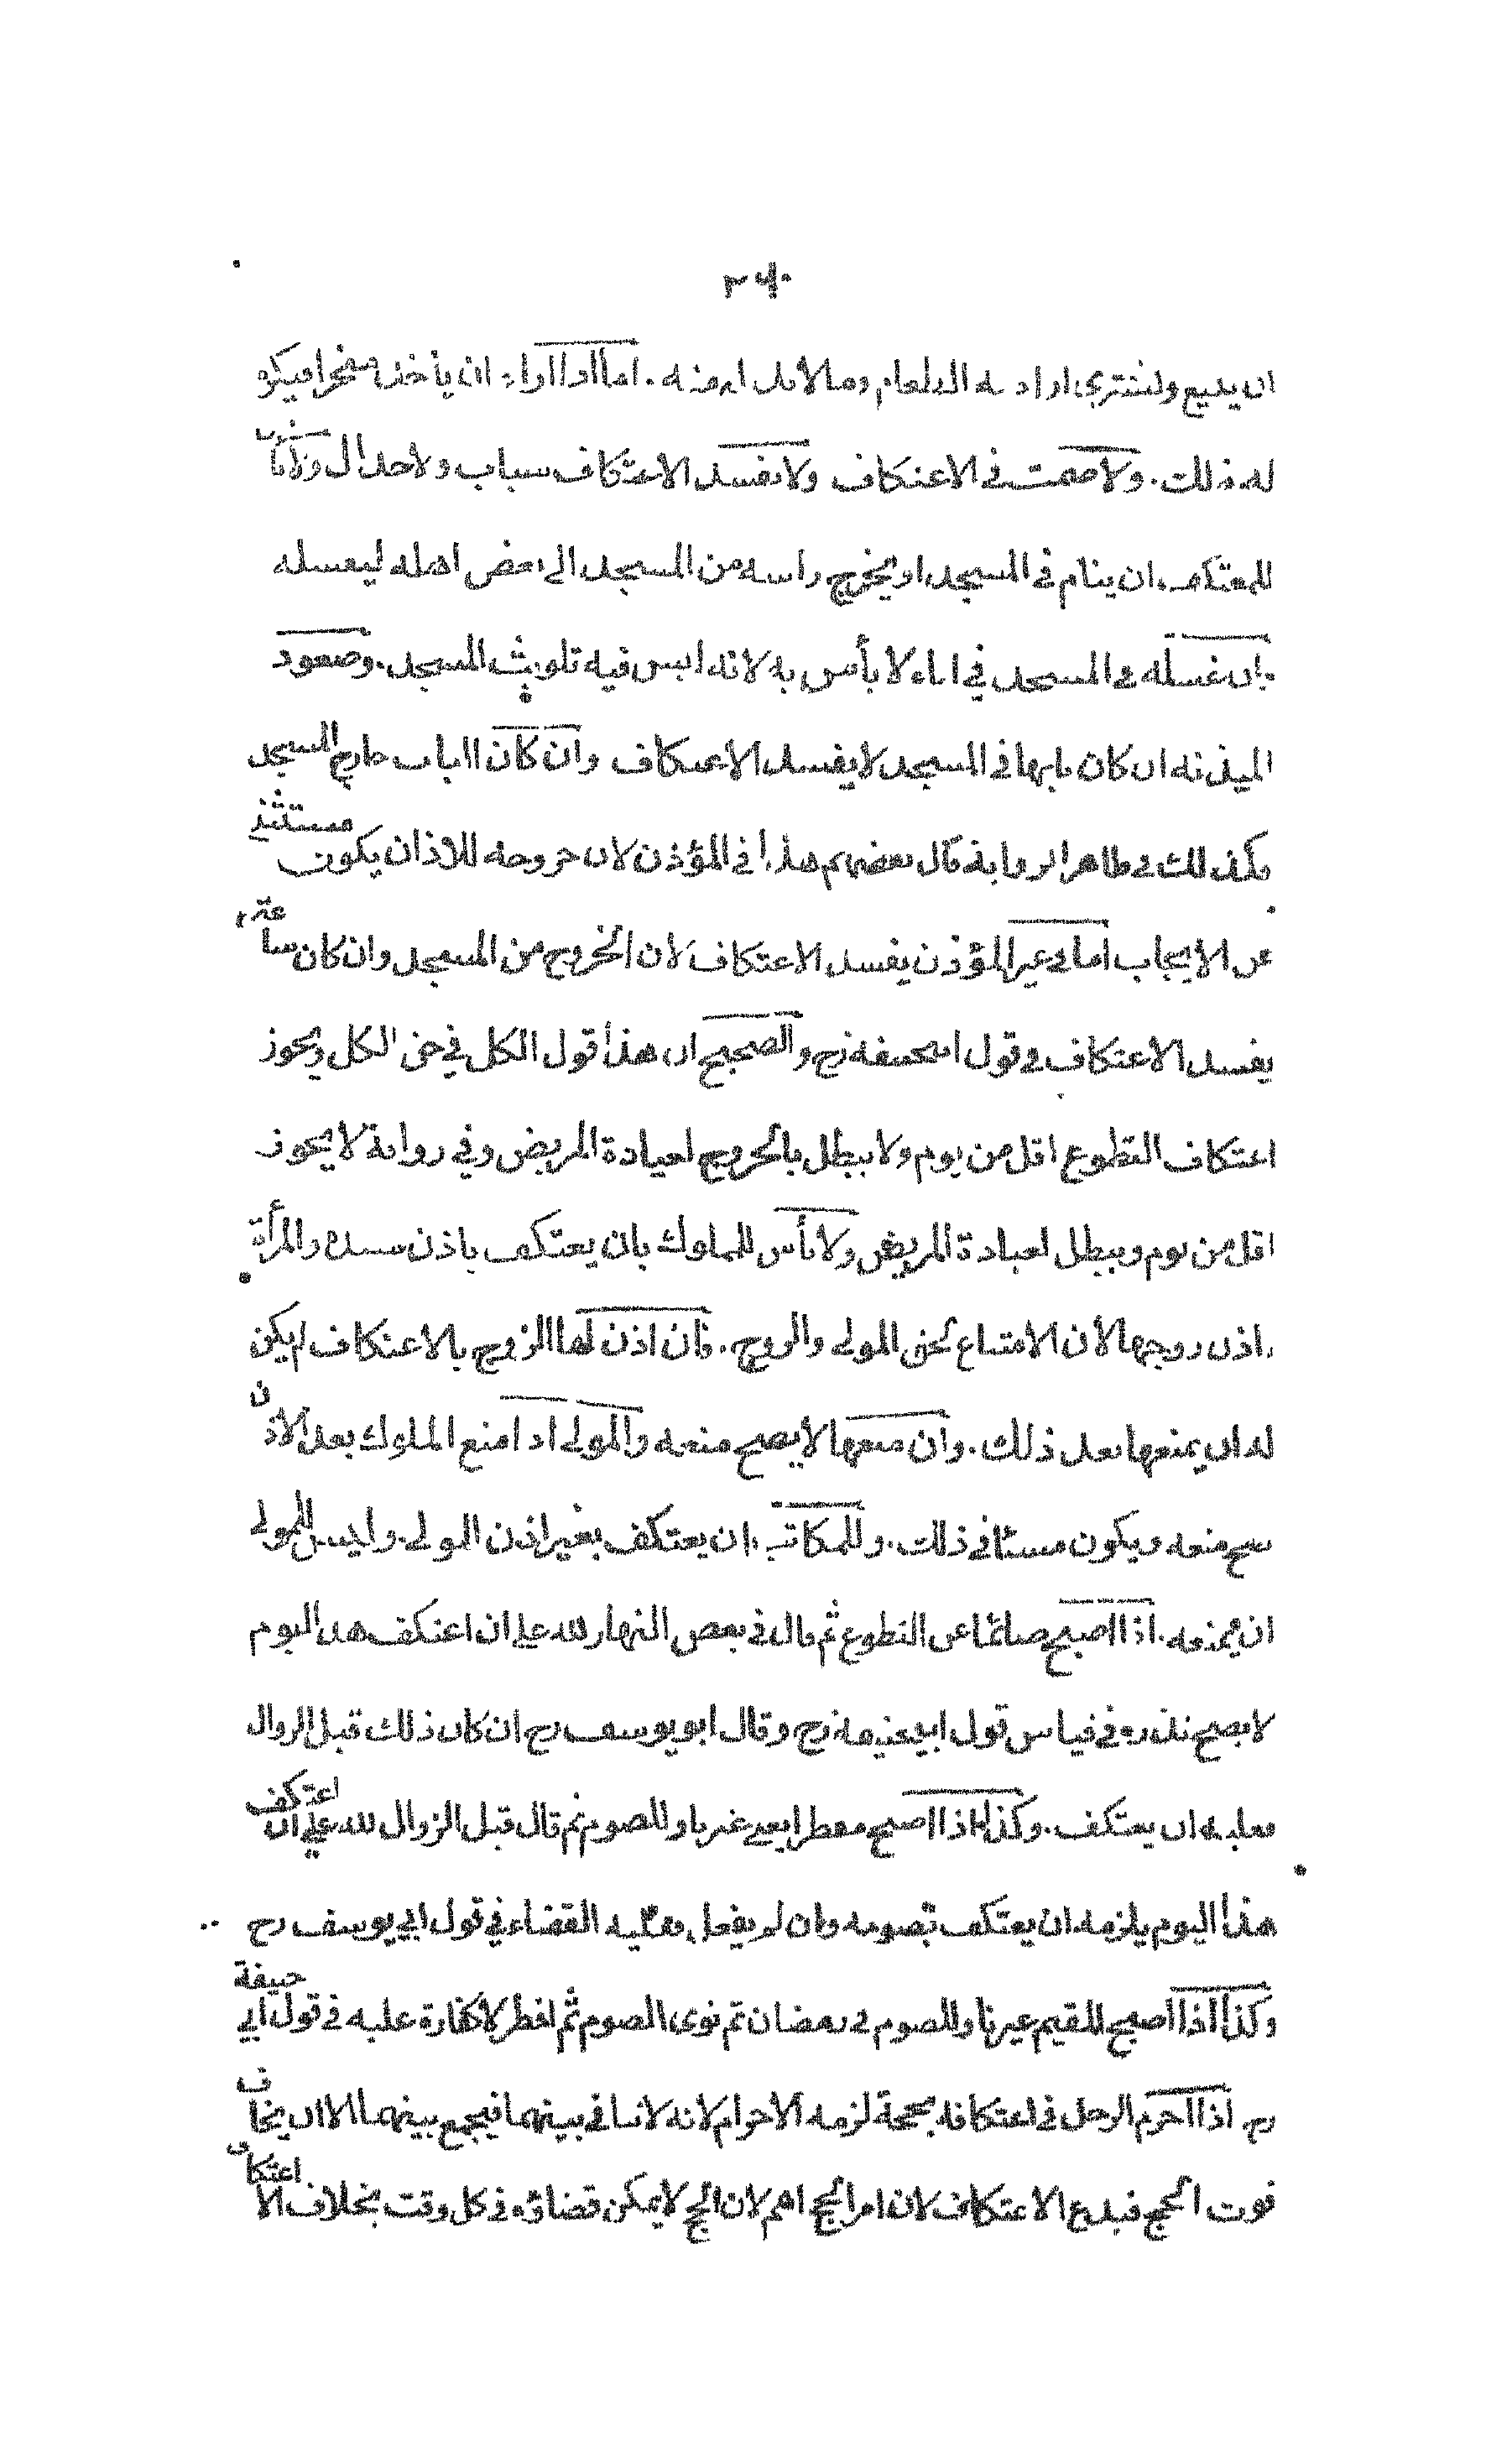 ان يبيع ويشتري اراد به الطعام وما لابد له منه . اما اذا اراد ان يأخذ متجرا فيكره
له ذلك . ولا صمت في الاعتكاف ولا يفسد الاعتكاف سباب ولا جدال ولا بأس
للمعتكف ان ينام في المسجد او يخرج راسه من المسجد الى بعض اهله ليغسله
وان غسله في المسجد في اناء لا بأس به لانه ليس فيه تلويث المسجد . وصعود
الميذنه ان كان بابها في المسجد لا يفسد الاعتكاف وان كان الباب خارج المسجد
فكذلك في ظاهر الرواية قال بعضهم هذا في المؤذن لان خروجه للاذان يكون مستثنى
عن الايجاب اما في غير المؤذن يفسد الاعتكاف لان الخروج من المسجد وان كان ساعة
يفسد الاعتكاف في قول ابيحنيفة رح والصحيح ان هذا قول الكل في حق الكل ويجوز
اعتكاف التطوع اقل من يوم ولا يبطل بالخروج لعيادة المريض وفي رواية لا يجوز
اقل من يوم ويبطل لعيادة المريض ولا بأس للمملوك بان يعتكف باذن سيده والمرأة
باذن زوجها لان الامتناع لحق المولى والزوج . فان اذن لها الزوج بالاعتكاف لم يكن
له ان يمنعها بعد ذلك . وان منعها لا يصح منعه والمولى اذا منع المملوك بعد الاذن
صح منعه ويكون مسئا في ذلك . وللمكاتب ان يعتكف بغير اذن المولى . وليس للمولى
ان يمنعه . اذا اصبح صائما عن التطوع ثم قال في بعض النهار لله علي ان اعتكف هذا اليوم
لا يصح نذره في قياس قول ابيحنيفة رح وقال ابو يوسف رح ان كان ذلك قبل الزوال
فعليه ان يعتكف . وكذا اذا اصبح مفطرا يعني غير ناو للصوم ثم قال قبل الزوال لله علي ان اعتكف
هذا اليوم يلزمه ان يعتكف بصومه وان لم يفعل فعليه القضاء في قول ابي يوسف رح
وكذا اذا اصبح المقيم غير ناو للصوم في رمضان ثم نوى الصوم ثم افطر لا كفارة عليه في قول ابي حنيفة
رح اذا احرم الرجل في اعتكافه بحجة لزمه الاحرام لانه لا تنافي بينهما فيجمع بينهما الا ان يخاف
فوت الحج فيدع الاعتكاف لان امر الحج اهم لان الحج لا يمكن قضاؤه في كل وقت بخلاف الاعتكاف